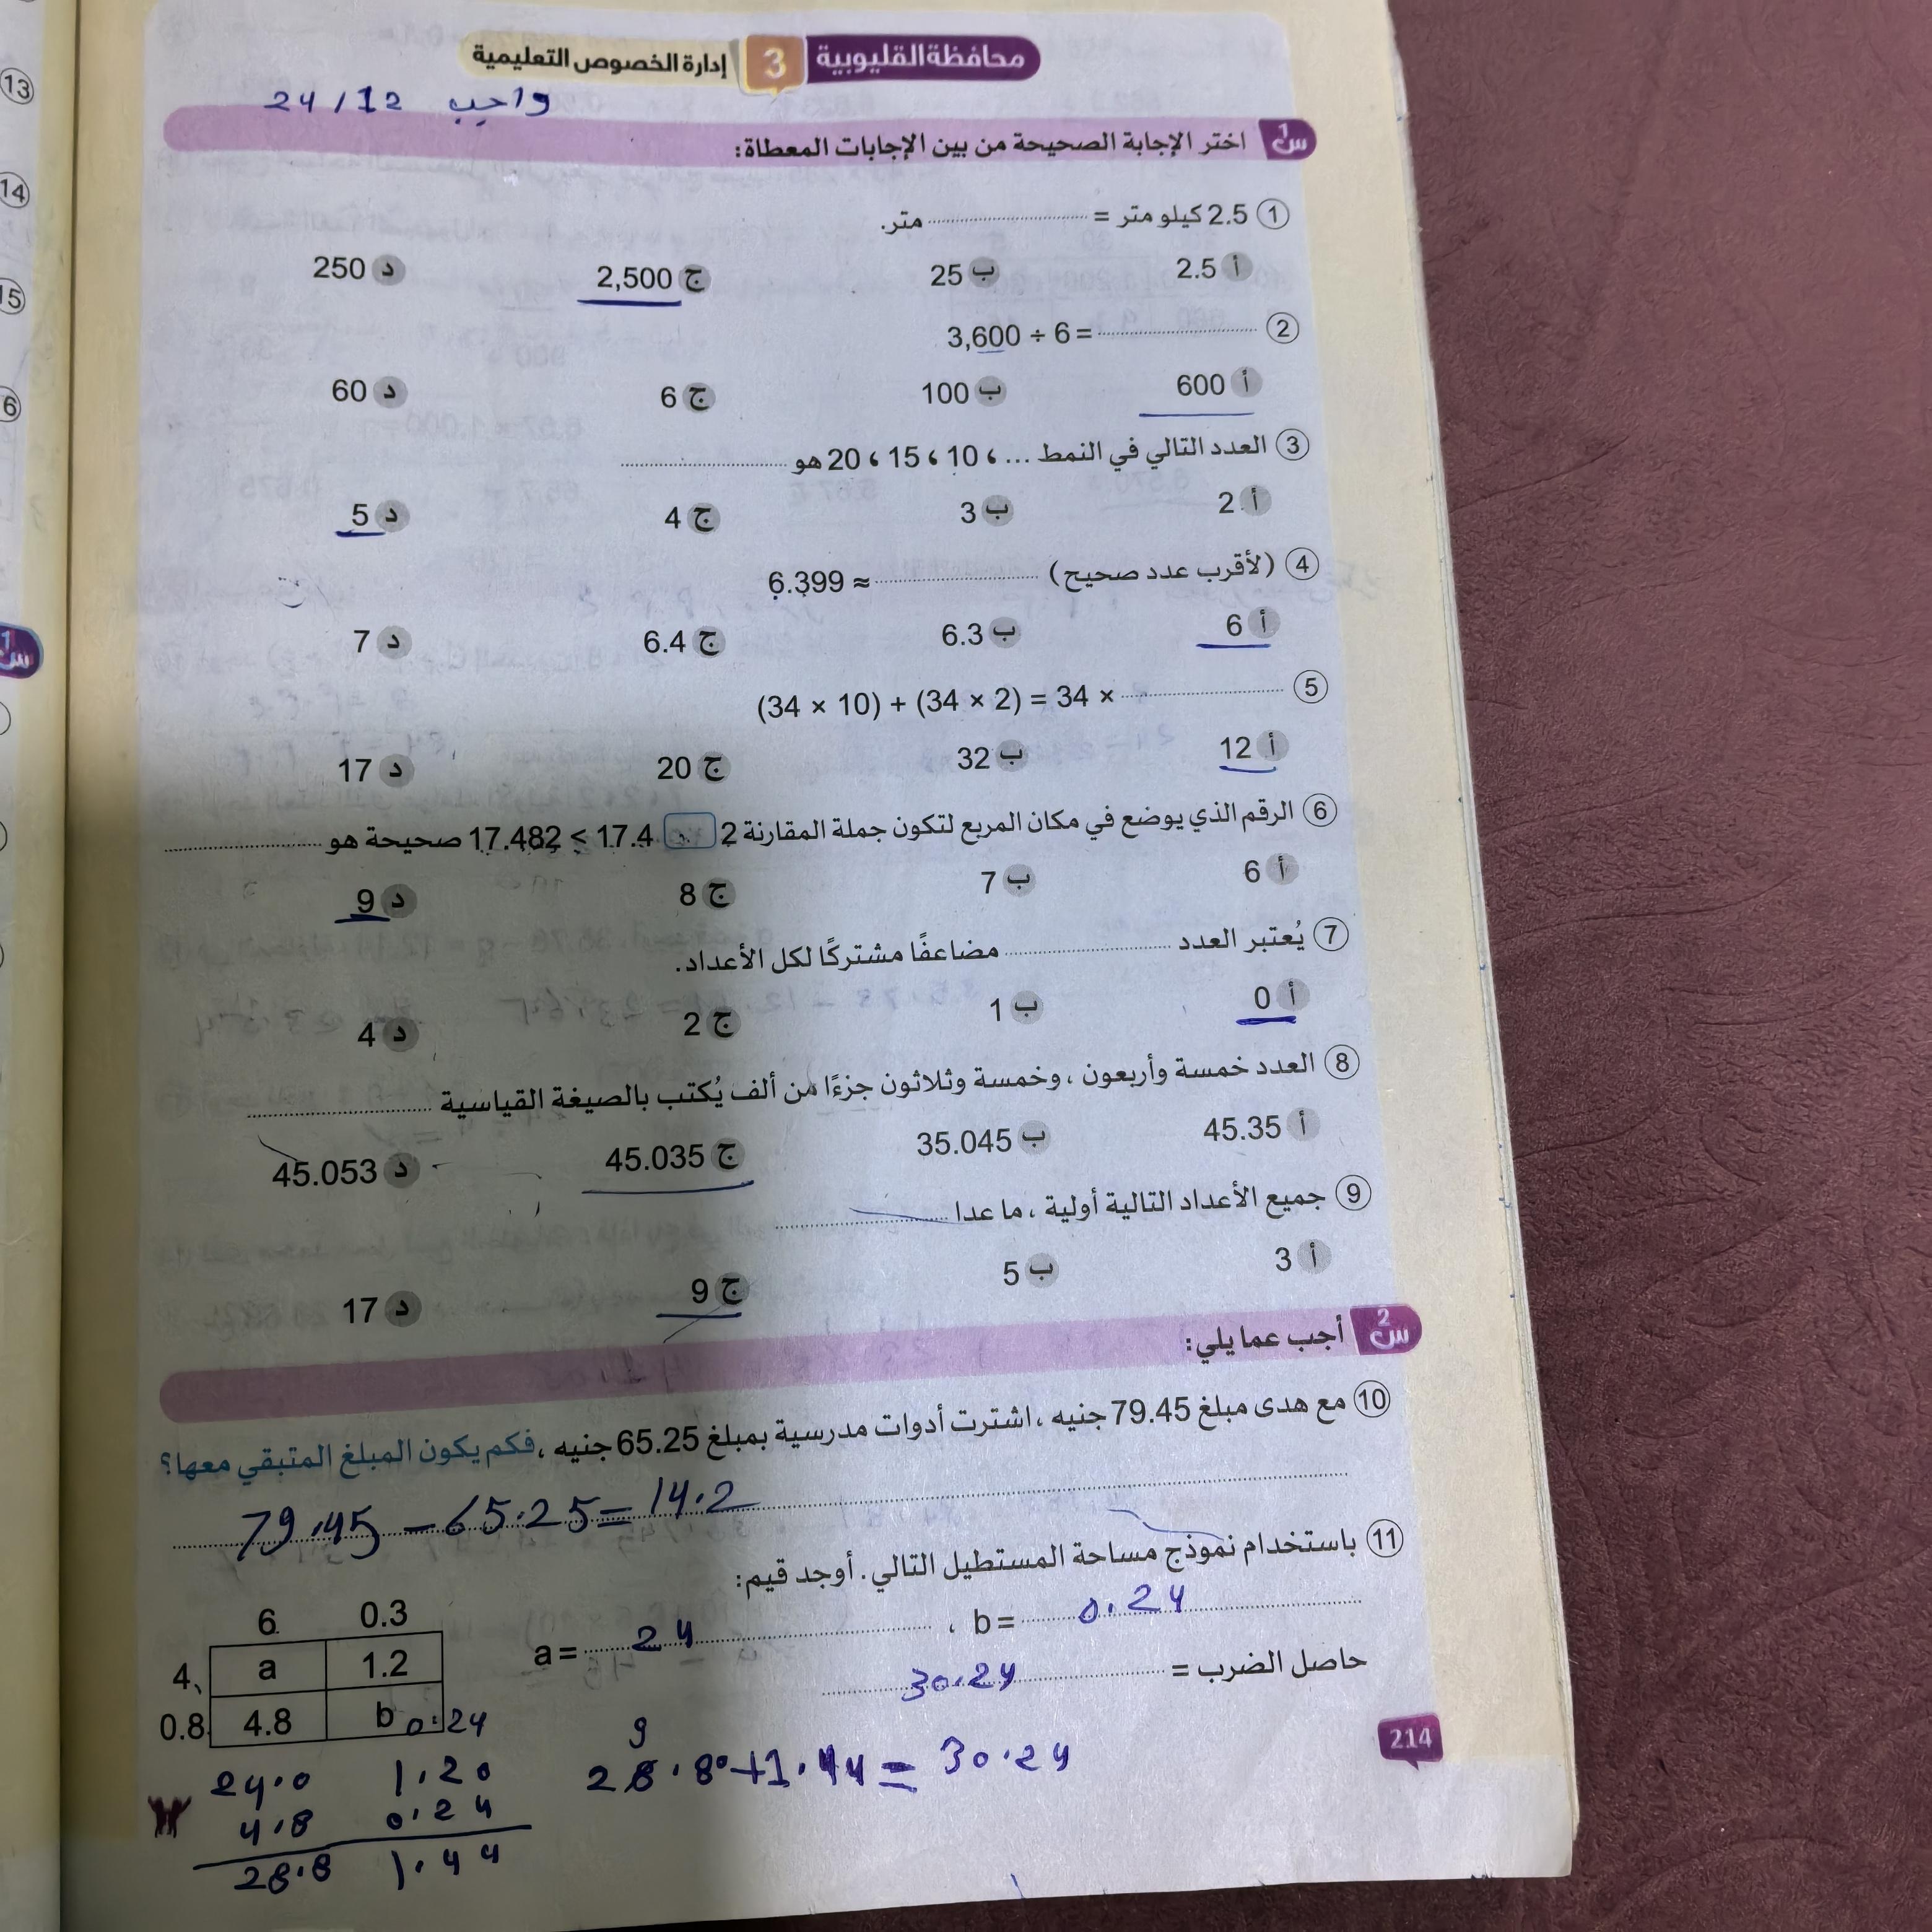 محافظة القليوبية 3 إدارة الخصوص التعليمية
واجب 24/12
س1 اختر الإجابة الصحيحة من بين الإجابات المعطاة:
1 2.5 كيلو متر = ........ متر.
أ 2.5 ب 25 ج 2,500 د 250
2 3,600 ÷ 6 = ........
أ 600 ب 100 ج 6 د 60
3 العدد التالي في النمط ... ، 10 ، 15 ، 20 هو ........
أ 2 ب 3 ج 4 د 5
4 6.399 ≈ ........ (لأقرب عدد صحيح)
أ 6 ب 6.3 ج 6.4 د 7
5 (34 × 10) + (34 × 2) = 34 × ........
أ 12 ب 32 ج 20 د 17
6 الرقم الذي يوضع في مكان المربع لتكون جملة المقارنة 17.482 < 17.4 □ 2 صحيحة هو ........
أ 6 ب 7 ج 8 د 9
7 يُعتبر العدد ........ مضاعفًا مشتركًا لكل الأعداد.
أ 0 ب 1 ج 2 د 4
8 العدد خمسة وأربعون ، وخمسة وثلاثون جزءًا من ألف يُكتب بالصيغة القياسية ........
أ 45.35 ب 35.045 ج 45.035 د 45.053
9 جميع الأعداد التالية أولية ، ما عدا ........
أ 3 ب 5 ج 9 د 17
س2 أجب عما يلي:
10 مع هدى مبلغ 79.45 جنيه ، اشترت أدوات مدرسية بمبلغ 65.25 جنيه ، فكم يكون المبلغ المتبقي معها؟
79.45 - 65.25 = 14.2
11 باستخدام نموذج مساحة المستطيل التالي. أوجد قيم:
a = 24 ، b = 0.24
حاصل الضرب = 30.24
6 0.3
4 a 1.2
0.8 4.8 b 0.24
24.0 1.20
4.8 0.24
28.8 1.44
9
28.80 + 1.44 = 30.24
214
13
14
15
6
س1